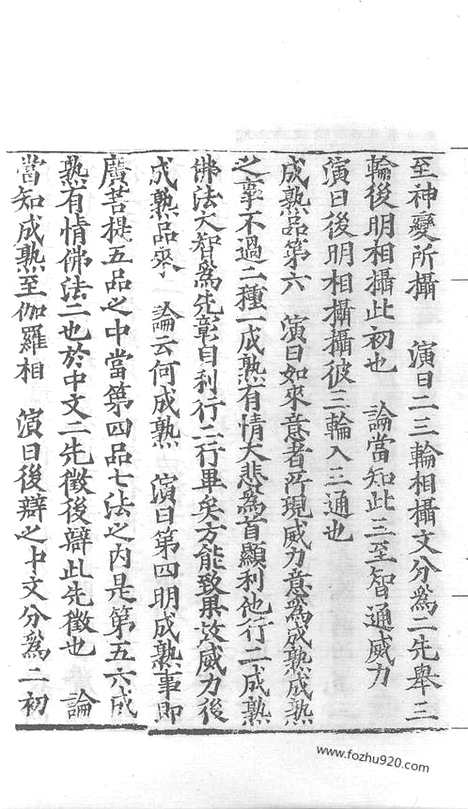 至神變所攝　演曰二三輪相攝文分爲二先舉三
輪後明相攝此初也　論當知此三至智通威力
演曰後明相攝攝彼三輪入三通也
成熟品第六　演曰如來意者所現威力意爲成熟成熟
之事不過二種一成熟有情大悲爲首顯利他行二成熟
佛法大智爲先彰自利行二行畢矣方能致果故威力後
成熟品來　論云何成熟　演曰第四明成熟事即
廣菩提五品之中當第四品七法之內是第五六成
熟有情佛法二也於中文二先徵後辯此先徵也　論
當知成熟至伽羅相　演曰後辯之中文分爲二初
www.fozhu920.com